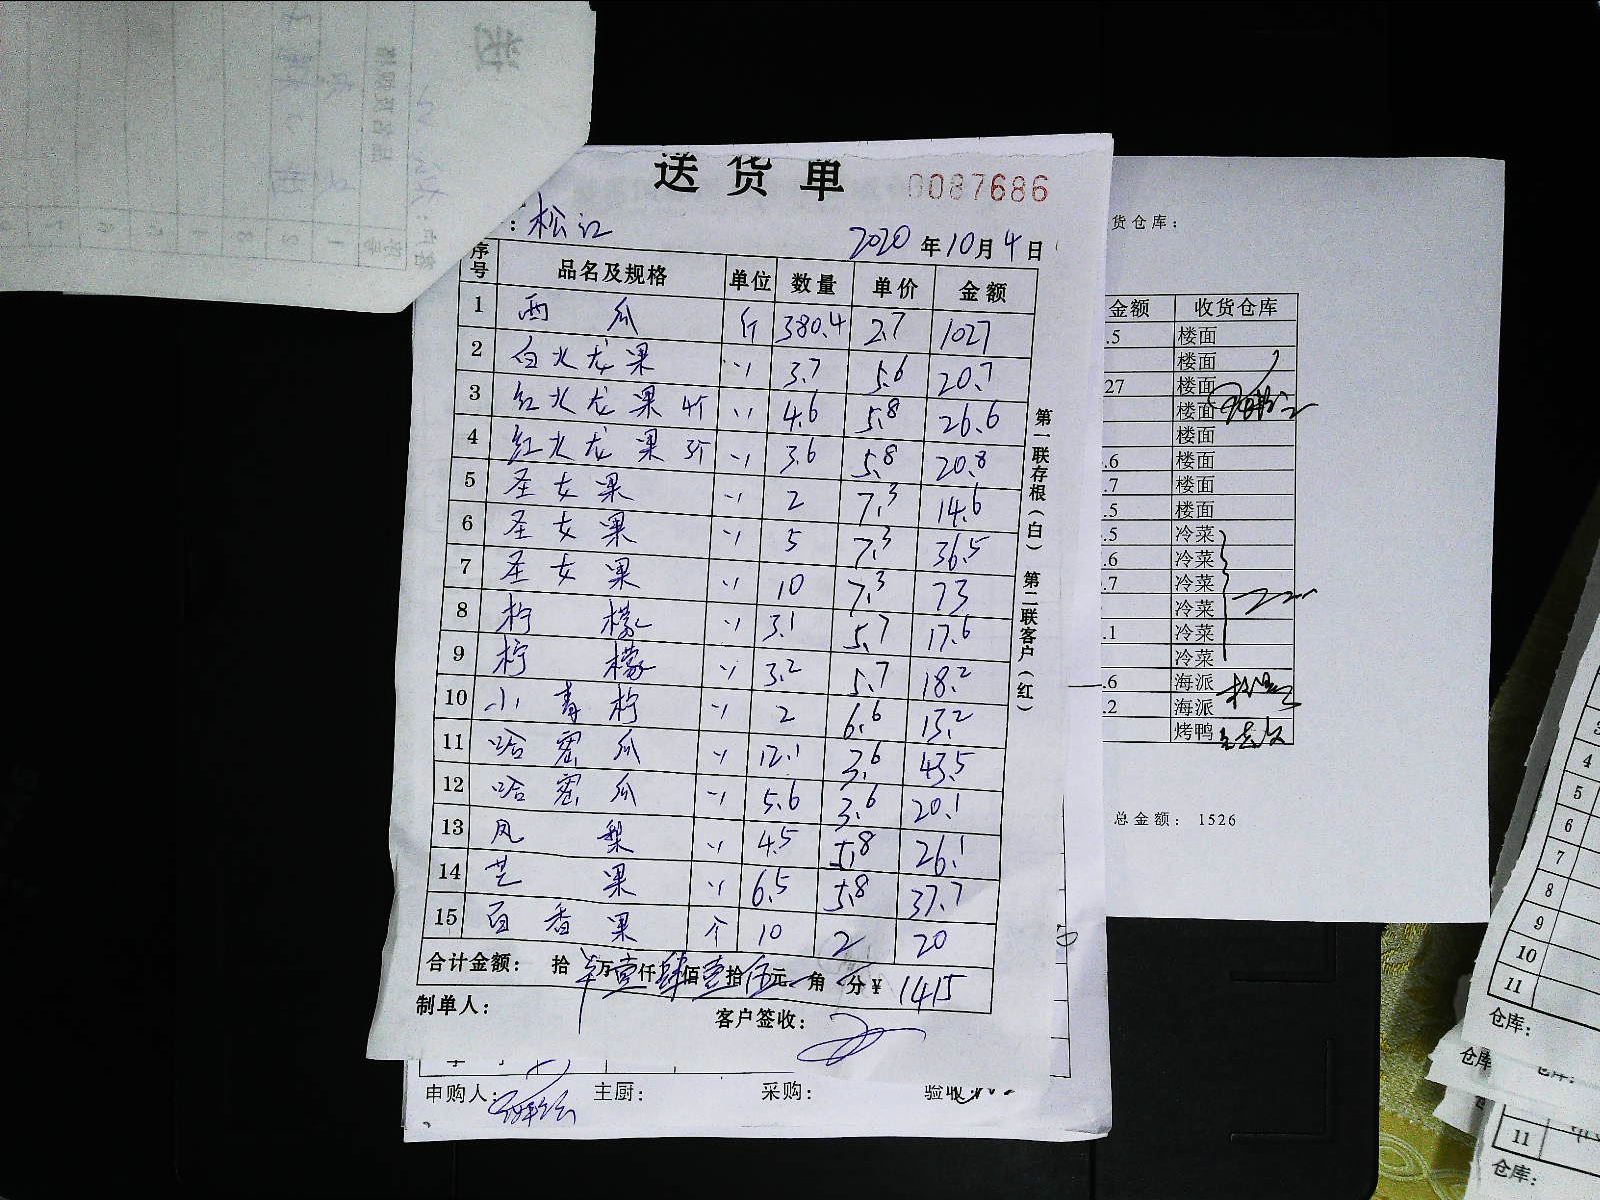 送货单 0087686
：松江
2020年10月4日
序号 品名及规格 单位 数量 单价 金额
1 西瓜 斤 380.4 2.7 1027
2 白火龙果 〃 3.7 5.6 20.7
3 红火龙果 4斤 〃 4.6 5.8 26.6
4 红火龙果 3斤 〃 3.6 5.8 20.8
5 圣女果 〃 2 7.3 14.6
6 圣女果 〃 5 7.3 36.5
7 圣女果 〃 10 7.3 73
8 柠檬 〃 3.1 5.7 17.6
9 柠檬 〃 3.2 5.7 18.2
10 小青柠 〃 2 6.6 13.2
11 哈密瓜 〃 12.1 3.6 43.5
12 哈密瓜 〃 5.6 3.6 20.1
13 凤梨 〃 4.5 5.8 26.1
14 芒果 〃 6.5 5.8 37.7
15 百香果 个 10 2 20
合计金额： 拾 万壹仟肆佰壹拾伍元 角 分￥ 1415
制单人： 客户签收：
第一联存根（白） 第二联客户（红）
申购人： 主厨： 采购： 验收
货仓库：
金额 收货仓库
.5 楼面
楼面
27 楼面
楼面
楼面
.6 楼面
.7 楼面
.5 楼面
.5 冷菜
.6 冷菜
.7 冷菜
冷菜
.1 冷菜
冷菜
.6 海派
.2 海派
烤鸭
总金额： 1526
3
4
5
6
7
8
9
10
11
仓库：
仓库
11
仓库：